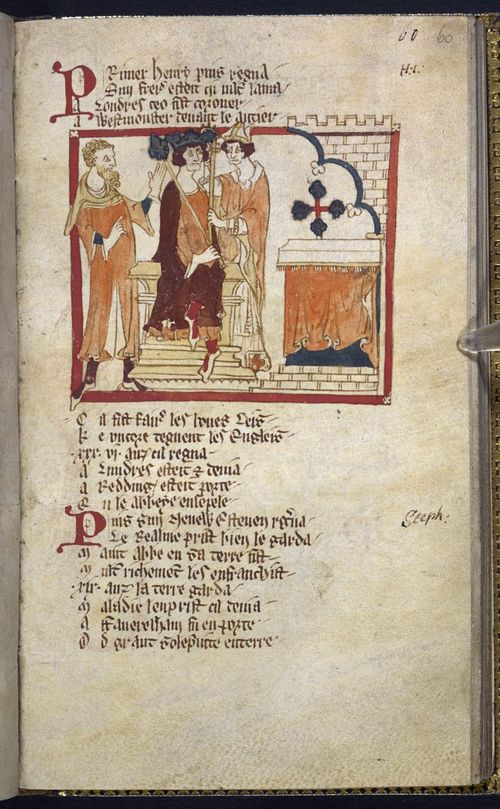 60 60
Primer Henry puis regna
H. I.
Sun frere esteit qi mlt lama
A Londres ceo fist coroner
A Westmonster devant le autier
E il fist faire les bones leis
Ke uncore tegnent les Engleis
xxx. vi. anz cil regna
A Londres esteit & devia
A Redding esteit porte
En le abbeye enterele
Puis sun Nevew Estevene regna
Steph:
Le Realme prist bien le garda
Maint abbe en sa terre fist
Mlt richement les enfranchist
xix. anz la terre garda
Maladie len prist cil devia
A Faverelham fu en porte
Od graut solepnite enterre